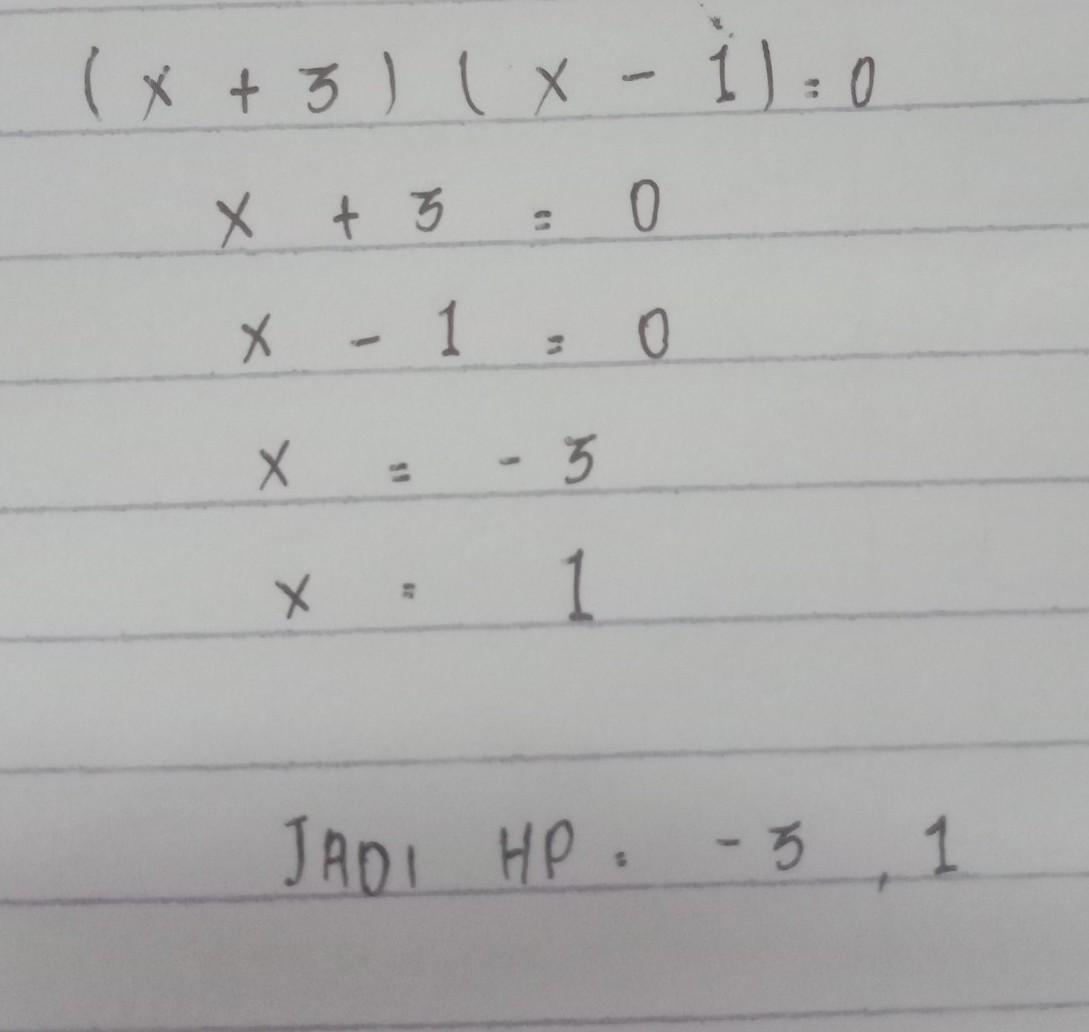 (x + 3) (x - 1) = 0
x + 3 = 0
x - 1 = 0
x = - 3
x = 1
JADI HP = - 3 , 1